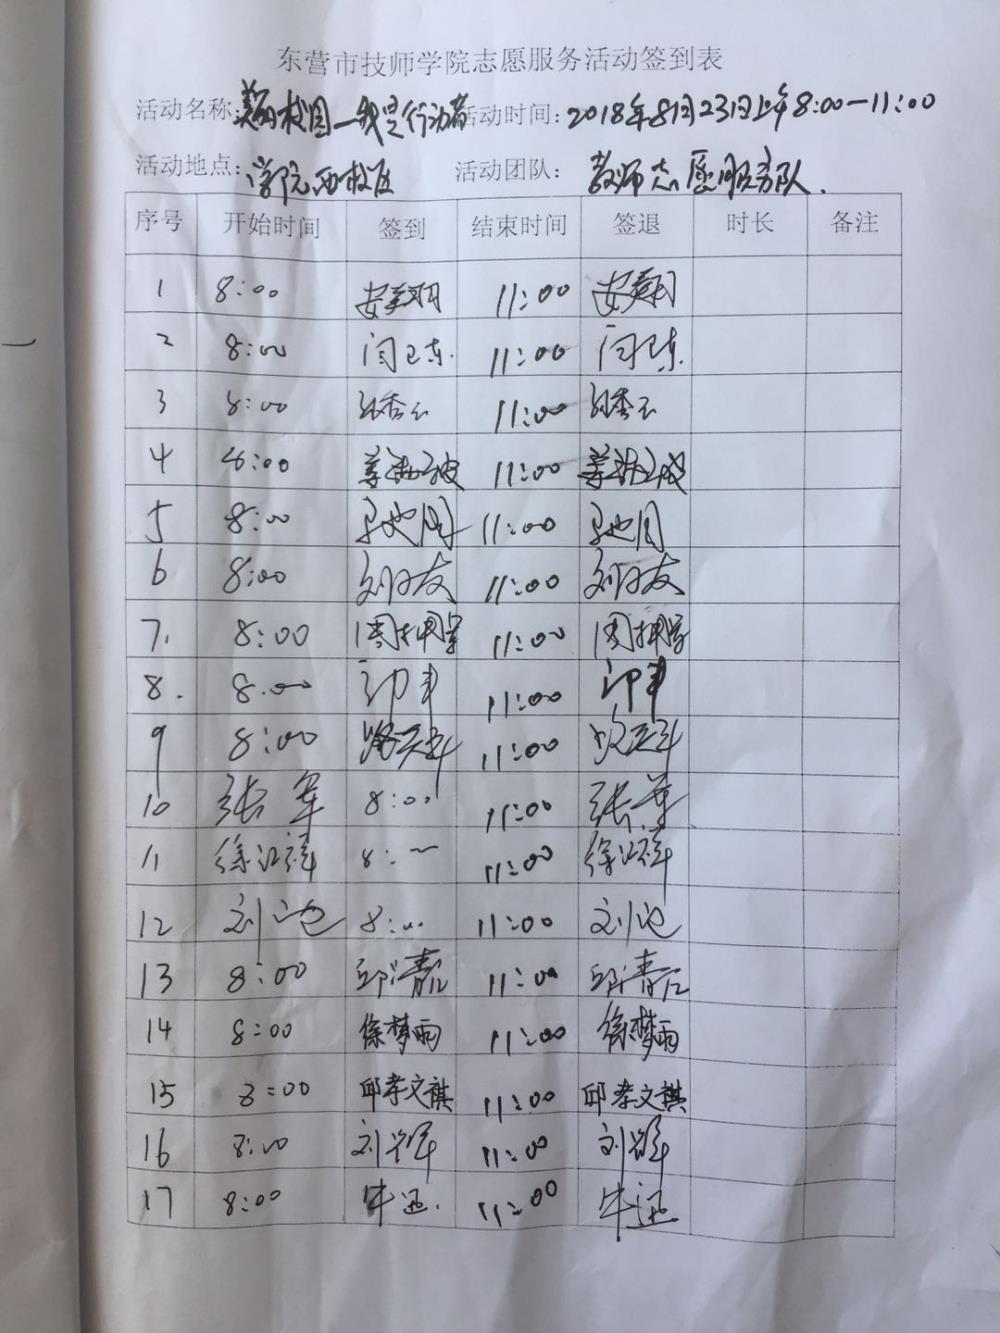 东营市技师学院志愿服务活动签到表
活动名称:美丽校园—我是行动者 活动时间:2018年8月23日上午8:00—11:00
活动地点:学院西校区 活动团队:教师志愿服务队.
序号 开始时间 签到 结束时间 签退 时长 备注
1 8:00 安翔 11:00 安翔
2 8:00 闫卫东. 11:00 闫卫东.
3 8:00 11:00
4 8:00 11:00
5 8:00 11:00
6 8:00 刘友 11:00 刘友
7. 8:00 11:00
8. 8:00 11:00
9 8:00 11:00
10 张军 8:00 11:00 张军
11 徐江祥 8: 11:00 徐江祥
12 刘池 8:00 11:00 刘池
13 8:00 邱清 11:00 邱清
14 8:00 徐梦雨 11:00 徐梦雨
15 8:00 邱孝文祺 11:00 邱孝文祺
16 8:00 刘 11:00 刘
17 8:00 牛迅. 11:00 牛迅